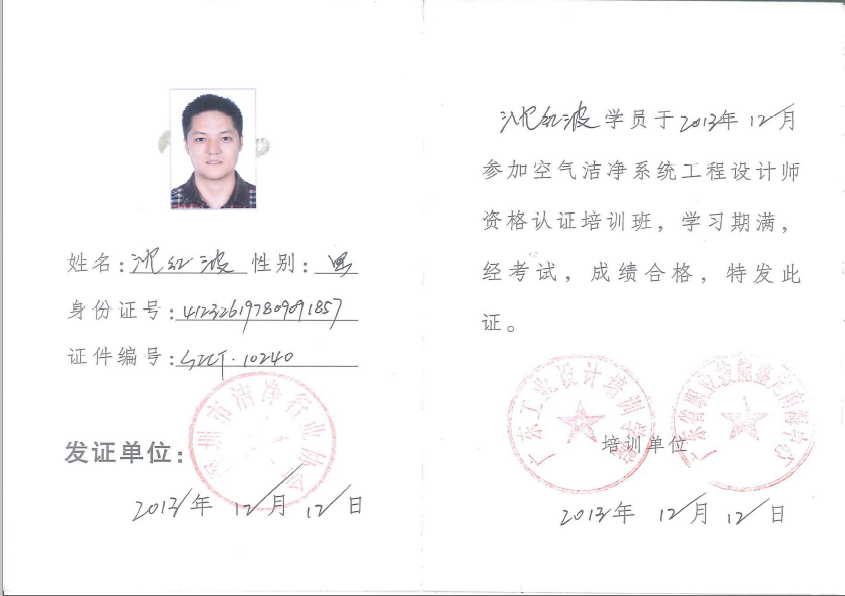 姓名：沈红波 性别：男
身份证号：412326197809091857
证件编号：SZCT·10240
深圳市洁净行业协会
发证单位：
2013年12月12日
沈红波学员于2013年12月
参加空气洁净系统工程设计师
资格认证培训班，学习期满，
经考试，成绩合格，特发此
证。
广东工业设计培训学院
广东省职业技能鉴定南海中心
培训单位
2013年12月12日